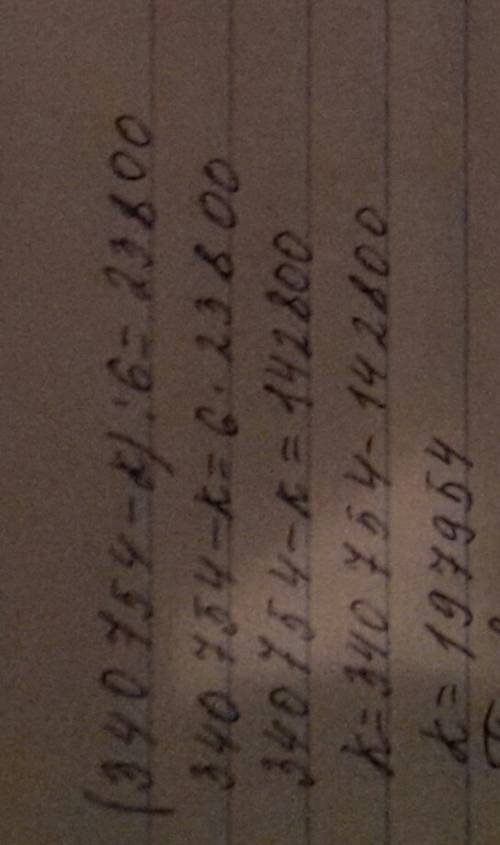 (340754-к):6=23800
340754-к=6·23800
340754-к=142800
к=340754-142800
к=197954